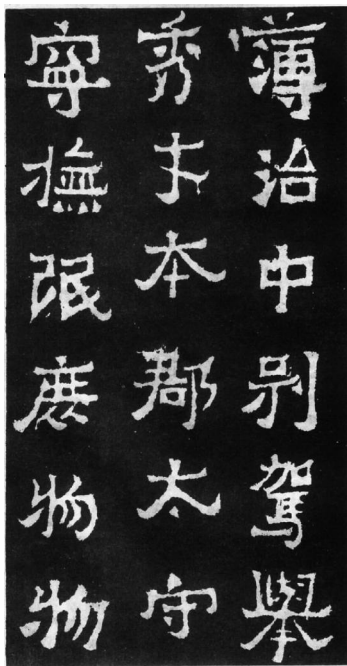 薄治中别駕舉
秀才本郡太守
寧撫氓庶物物